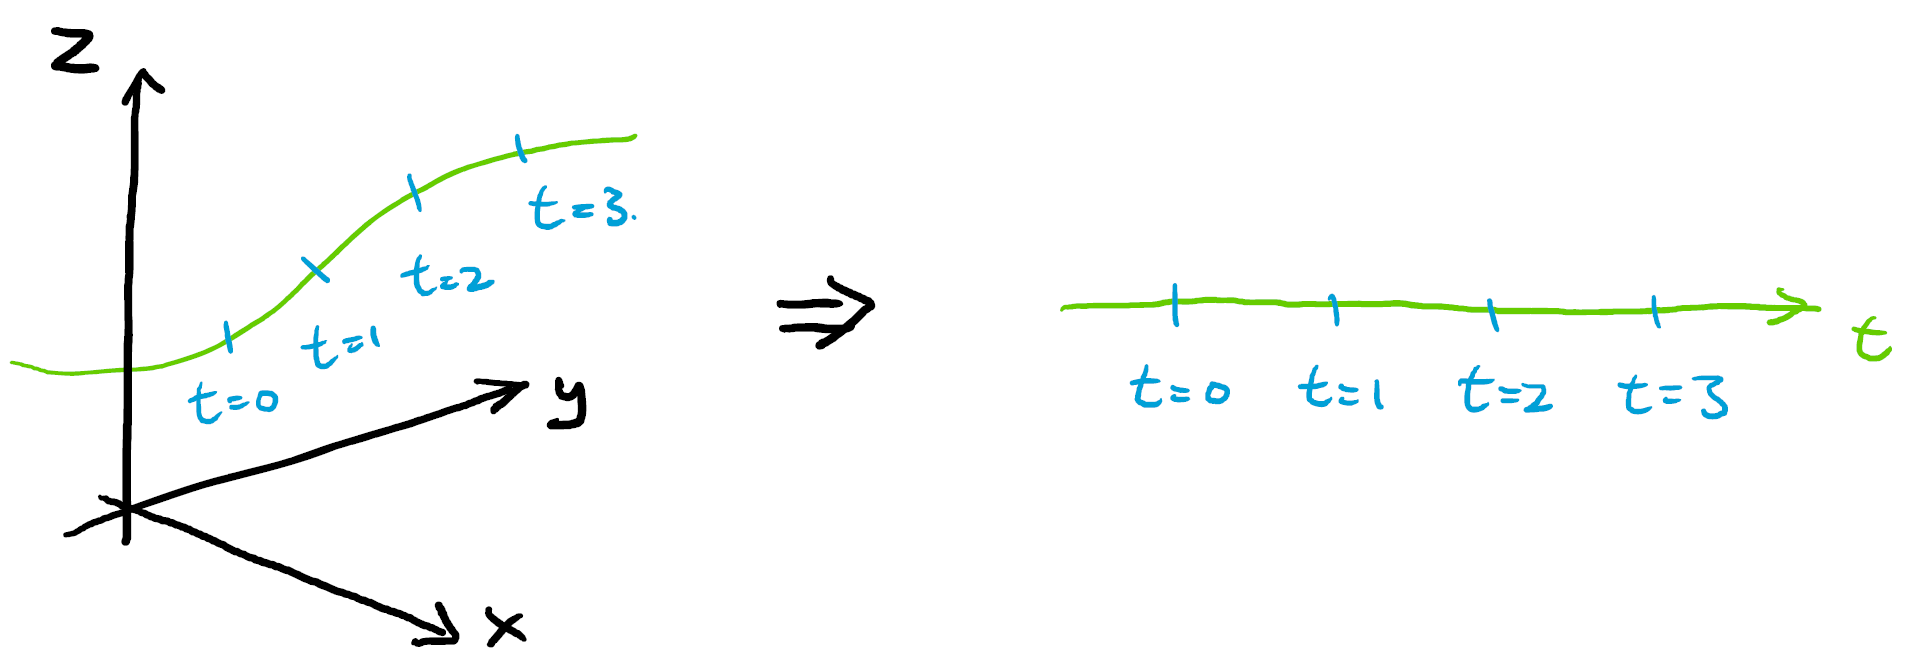 z
t=3.
t=2
t=1
t=0
y
x
t=0 t=1 t=2 t=3
t